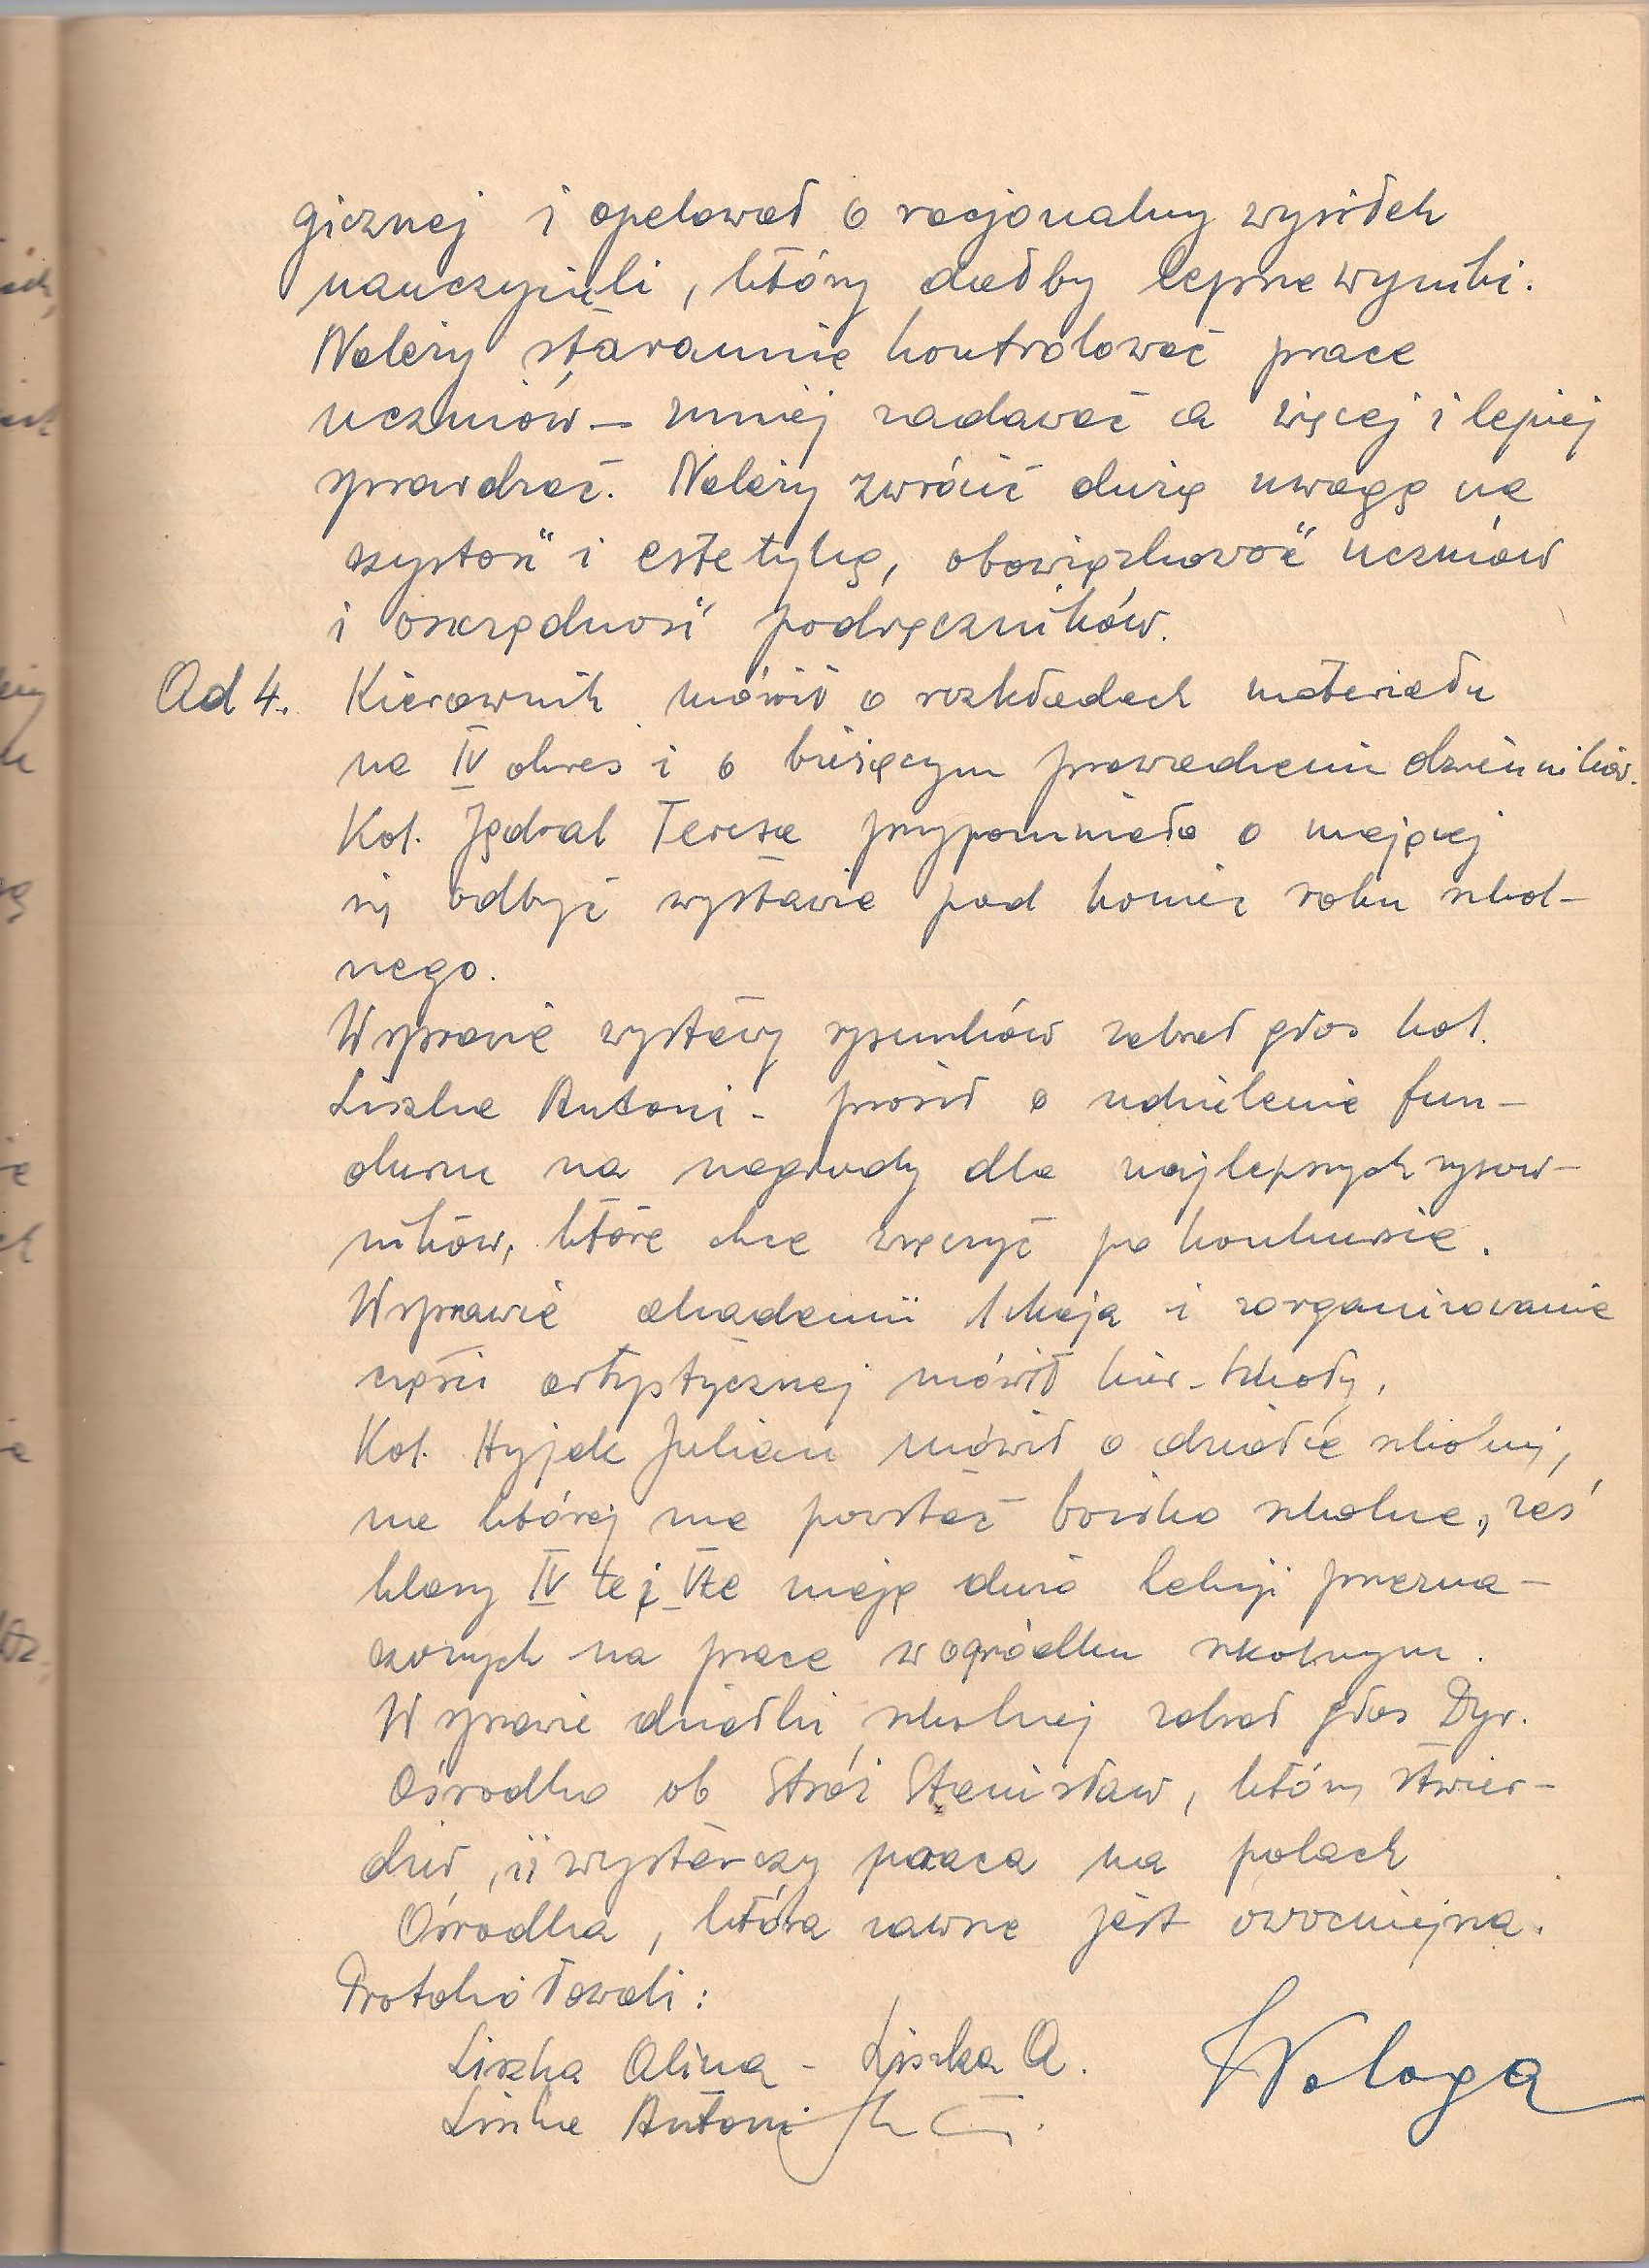 gicznej i apelował o racjonalny wysiłek
nauczycieli, który dałby lepsze wyniki.
Należy starannie kontrolować prace
uczniów – mniej zadawać a więcej i lepiej
sprawdzać. Należy zwrócić dużą uwagę na
czystość i estetykę, obowiązkowość uczniów
i oszczędność podręczników.
Ad 4. Kierownik mówił o rozkładach materiału
na IV okres i o bieżącym prowadzeniu dzienników.
Kol. Jędral Teresa przypomniała o mającej
się odbyć wystawie pod koniec roku szkol-
nego.
W sprawie wystawy rysunków zabrał głos kol.
Liszka Antoni – prosił o udzielenie fun-
duszu na nagrody dla najlepszych rysow-
ników, które chce wręczyć po konkursie.
W sprawie akademii 1 Maja i zorganizowanie
części artystycznej mówił kier. szkoły.
Kol. Hyjek Julian mówił o działce szkolnej,
na której ma powstać boisko szkolne, zaś
klasy IV te i VIte mają dużo lekcji przezna-
czonych na prace w ogródku szkolnym.
W sprawie działki szkolnej zabrał głos Dyr.
Ośrodka ob Stróż Stanisław, który stwier-
dził, iż wystarczy praca na polach
Ośrodka, która zawsze jest owocniejsza.
Protokółowali:
Liszka Alina – Liszka A.
Liszka Antoni
Wologa